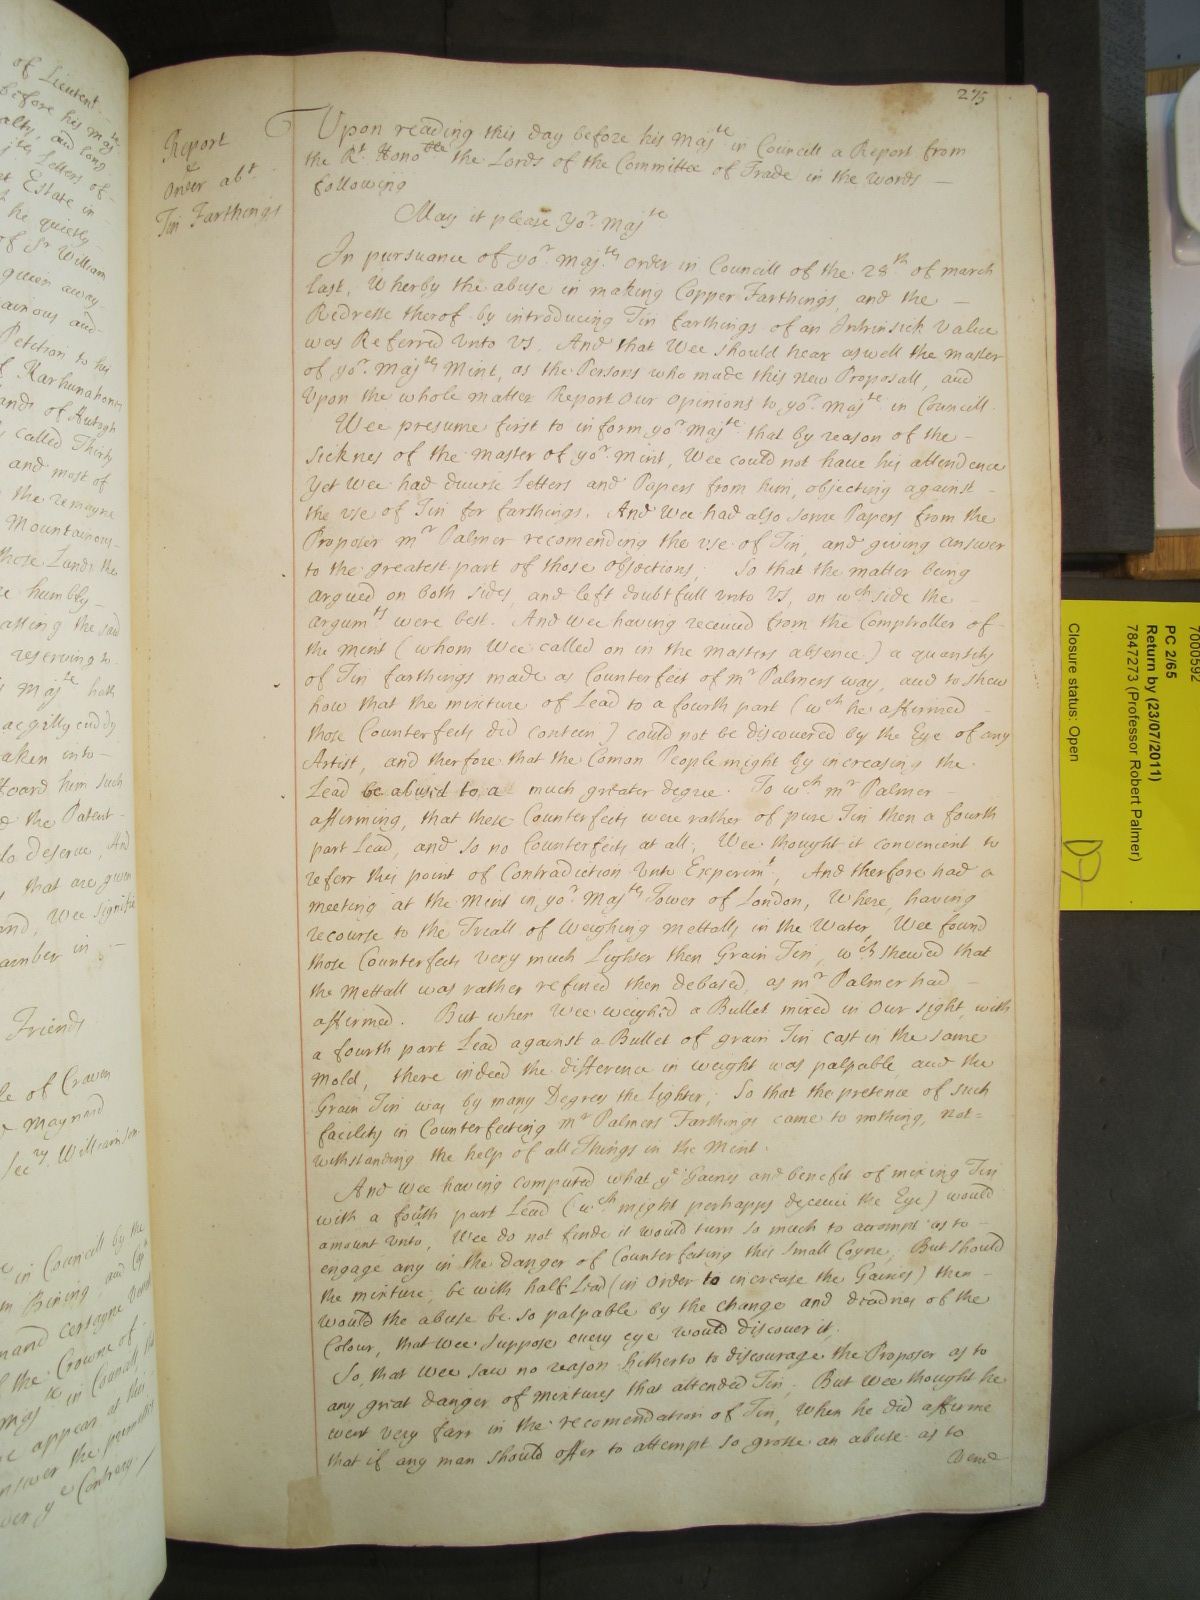 275
Report
&
Order abt
Tin Farthings
Upon reading this day before his Majte in Councill a Report from
the Rt Honoble the Lords of the Committee of Trade in the words —
following
May it please Yor Majte
In pursuance of yor Majtys Order in Councill of the 28th of march
last, Wherby the abuse in making Copper Farthings, and the —
Redresse therof by introducing Tin farthings of an Intrinsick Value
was Referred vnto vs. And that Wee should hear aswell the master
of yor Majtys Mint, as the Persons who made this new Proposall, and
Vpon the whole matter Report Our Opinions to yor Majte in Councill.
Wee presume first to inform yor Majte that by reason of the –
sicknes of the master of yor mint, Wee could not haue his attendence
Yet Wee had diuerse Letters and Papers from him, objecting against –
the vse of Tin for farthings. And Wee had also some Papers from the
Proposer mr Palmer recomending the vse of Tin, and giving answer
to the greatest part of those objections; So that the matter being
argued on both sides, and left doubtfull vnto vs, on wch side the –
argumts were best. And wee having receiued from the Comptroller of –
the mint (whom Wee called on in the masters absence) a quantity
of Tin farthings made as Counterfeit of mr Palmers way, and to shew
how that the mixture of Lead to a fourth part (wch he affermed –
those Counterfeits did conteen) could not be discouered by the Eye of any
Artist, and therfore that the Coman People might by increasing the
Lead be abused to a much greater degree. To wch mr Palmer –
affirming, that these Counterfeits were rather of pure Tin then a fourth
part Lead, and so no Counterfeits at all; Wee thought it convenient to
referr this point of Contradiction vnto Experimt, And therfore had a
meeting at the Mint in yor Majtys Tower of London, Where, having
recourse to the Treall of Weighing mettalls in the Water, Wee found
those Counterfeits very much Lighter then Grain Tin, wch shewed that
the Mettall was rather refined then debased, as mr Palmer had –
affermed. But when Wee weighed a Bullet mixed in Our sight, with
a fourth part Lead against a Bullet of grain Tin cast in the same
mold, there indeed the difference in weight was palpable and the
Grain Tin was by many Degrees the Lighter; So that the pretence of such
facility in Counterfeiting mr Palmers Farthings came to nothing, not=
withstanding the help of all Things in the Mint.
And wee having computed what ye Gaines and benefit of mixing Tin
with a fouth part Lead (wch might perhapps deceiue the Eye) would
amount vnto, Wee do not finde it would turn so much to accompt as to –
engage any in the danger of Counterfeiting this small Coyne, But should
the mixture, be with half Lead (in Order to increase the Gaines) then –
would the abuse be so palpable by the change and deadnes of the
Colour, that Wee suppose every eye would discouer it.
So, that Wee saw no reason hitherto to discourage the Proposer as to
any great danger of Mixtures that attended Tin; But Wee thought he
went very farr in the recomendation of Tin, When he did affirme
that if any man should offer to attempt so grosse an abuse as to
vend
of Lieutent
before his Majte
and long
Letters of –
Estate in –
he quietly –
of Sr William
given away
and
Petition to his
called Thirty
and most of
the remayne
Mountainous –
those Lands the
humbly –
the said
Majte hath
taken into –
him such
the Patent –
deserve, And
that are given
Wee signifie
in –
Friends
of Craven
Maynard
Secry Williamson
in Councill by the
the Crowne of
Majte in Councill
appear at this
7000592
PC 2/65
Return by (23/07/2011)
7847273 (Professor Robert Palmer)
Closure status: Open